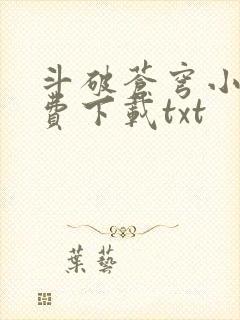 斗破蒼穹小
費下載txt
葉藝